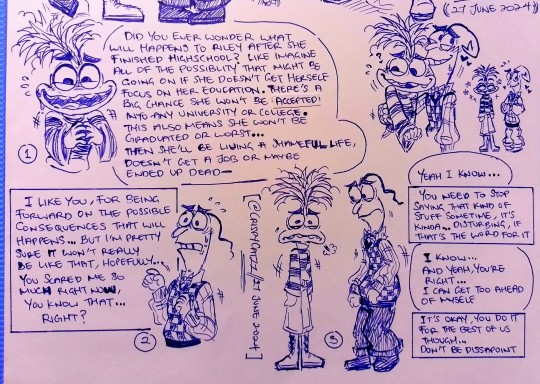 ((27 JUNE 2024))
DID YOU EVER WONDER WHAT
WILL HAPPENS TO RILEY AFTER SHE
FINISHED HIGHSCHOOL? LIKE IMAGINE
ALL OF THE POSSIBLITY THAT MIGHT BE
GOING ON IF SHE DOESN'T GET HERSELF
FOCUS ON HER EDUCATION. THERE'S A
BIG CHANCE SHE WON'T BE 'ACCEPTED'
INTO ANY UNIVERSITY OR COLLEGE.
THIS ALSO MEANS SHE WON'T BE
GRADUATED OR WORST...
THEN SHE'LL BE LIVING A SHAMEFUL LIFE,
DOESN'T GET A JOB OR MAYBE
ENDED UP DEAD—
1
I LIKE YOU, FOR BEING
FORWARD ON THE POSSIBLE
CONSEQUENCES THAT WILL
HAPPENS... BUT I'M PRETTY
SURE IT WON'T REALLY
BE LIKE THAT, HOPEFULLY...
YOU SCARED ME SO
MUCH RIGHT NOW,
YOU KNOW THAT...
RIGHT?
2
3
YEAH I KNOW...
YOU NEED TO STOP
SAYING THAT KIND OF
STUFF SOMETIME, IT'S
KINDA... DISTURBING, IF
THAT'S THE WORD FOR IT
I KNOW...
AND YEAH, YOU'RE
RIGHT...
I CAN GET TOO AHEAD
OF MYSELF
IT'S OKAY, YOU DO IT
FOR THE BEST OF US
THOUGH...
DON'T BE DISSAPOINT